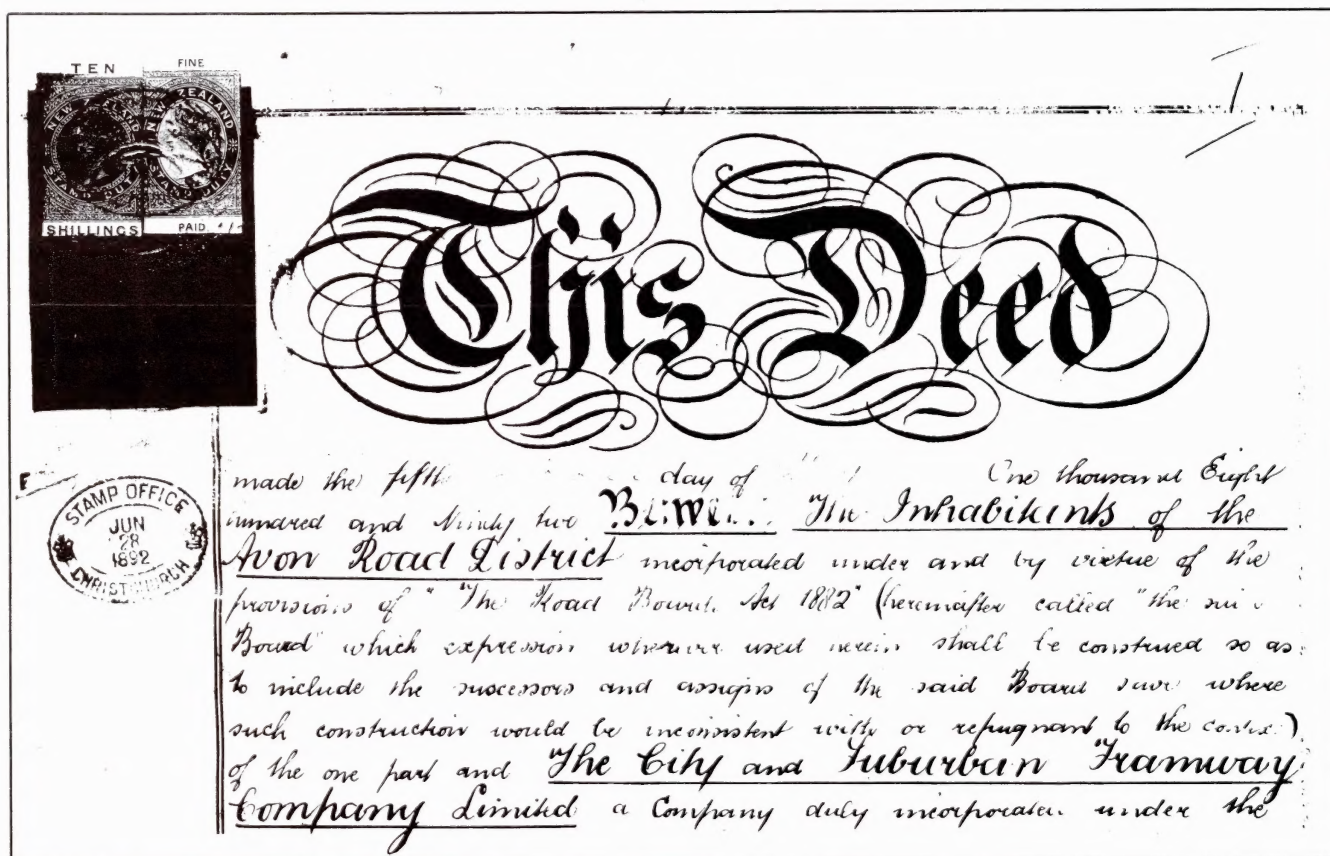 TEN
FINE
NEW ZEALAND
NEW ZEALAND
STAMP DUTY
STAMP DUTY
SHILLINGS
PAID
This Deed
STAMP OFFICE
JUN
28
1892
CHRISTCHURCH
made the fifth day of One thousand Eight
hundred and Ninety two Between The Inhabitants of the
Avon Road District incorporated under and by virtue of the
provisions of "The Road Boards Act 1882" (hereinafter called "the said
Board" which expression wherever used herein shall be construed so as
to include the successors and assigns of the said Board save where
such construction would be inconsistent with or repugnant to the context)
of the one part and The City and Suburban Tramway
Company Limited a Company duly incorporated under the